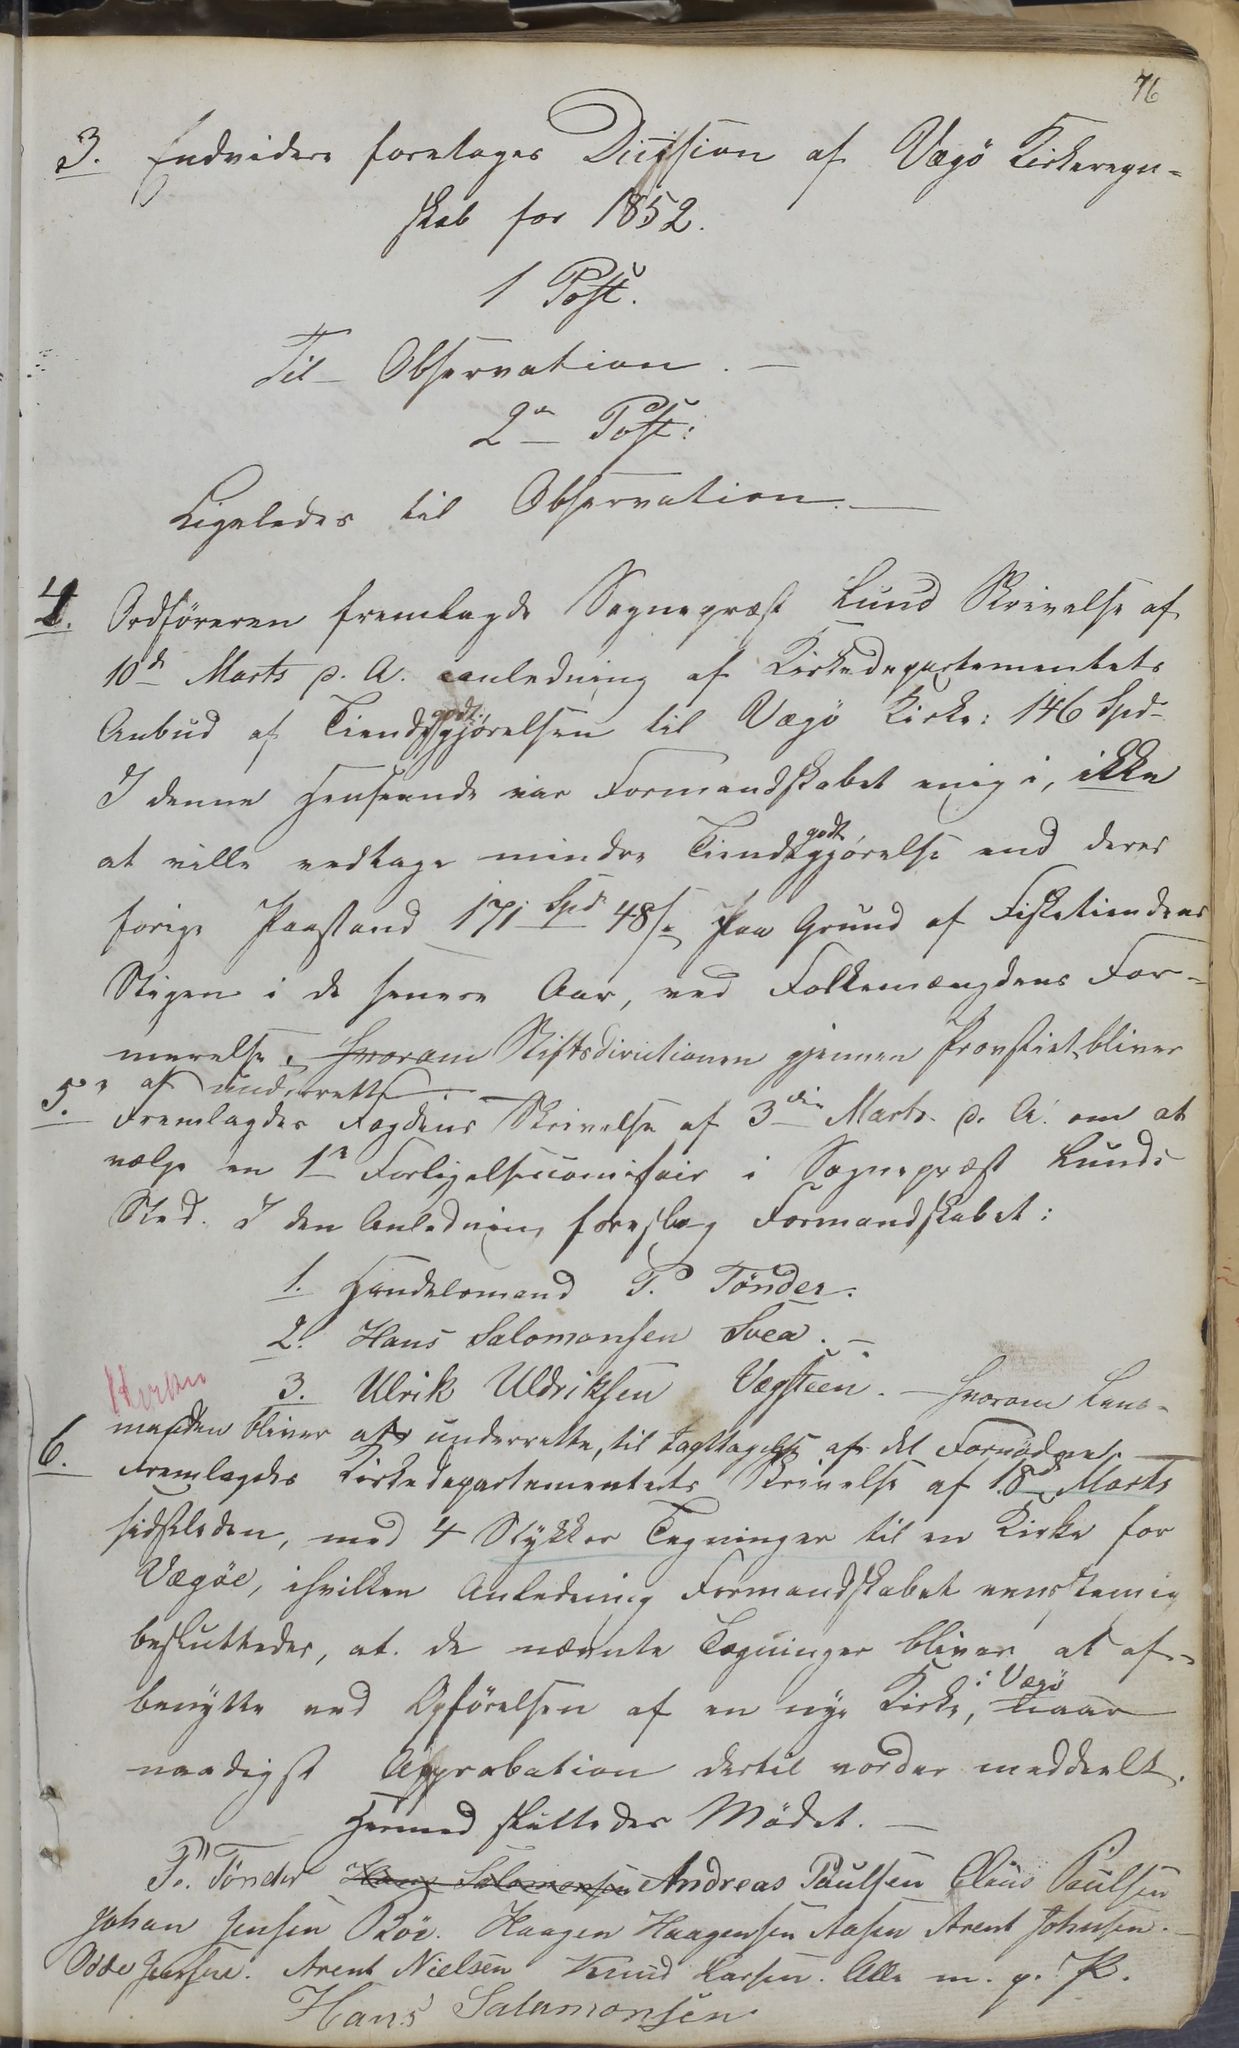 76
3. Endvidere foretoges Dicision af Vægö Kirkeregn-
skab for 1852.
1 Post.
Til Observation. -
2en Post:
Ligeledes til Observation. -
4. Ordföreren fremlagde Sognepræst Lund Skrivelse af
10de Marts d. A. anledning af Kirkedepartementets
Anbud af Tiendegodtgjörelsen til Vægö Kirke: 146 Spd
I denne Henseende var Formandskabet enig i, ikke
at ville vedtage mindre Tiendegodtgjörelse end deres
forige Paastand 171 Spd 48 s. Paa Grund af Fisketiendens
Stigen i de senere Aar, ved Folkemængdens For-
merelse. Hvorom Stiftsdirictionen gjennem Provstiet bliver
at underrette
5. Fremlagdes Fogdens Skrivelse af 3die Marts d. A. om at
vælge en 1n Forligelsescomisair i Sognepræst Lunds
Sted. I den Anledning foreslog Formandskabet:
1. Handelsmand P. Tönder.
2. Hans Salomonsen Svea. -
3. Ulrik Uldriksen Vegsteen. - Hvorom Lens-
Kirken
manden bliver at underrette, til Iagttagelse af det Fornödne. -
6. Fremlagdes Kirkedepartementets Skrivelse af 18de Marts
sidstleden, med 4 Stykker Tegninger til en Kirke for
Vægöe, ihvilken Anledning Formandskabet eenstemig
besluttedes, at de nævnte Tegninger bliver at af-
benytte ved Opförelsen af en nye Kirke, i Vægö naar
naadigst Approbation dertil vorder meddeelt.
Hermed sluttedes Mödet. -
P. Tönder Hans Salomonsen Andreas Paulsen Claus Paulsen
Johan Jensen Böe. Haagen Haagensen Aasen Arent Johnsen. -
Odde Jensen. Arent Nielsen Knud Larsen. Alle m. p. P.
Hans Salamonsen